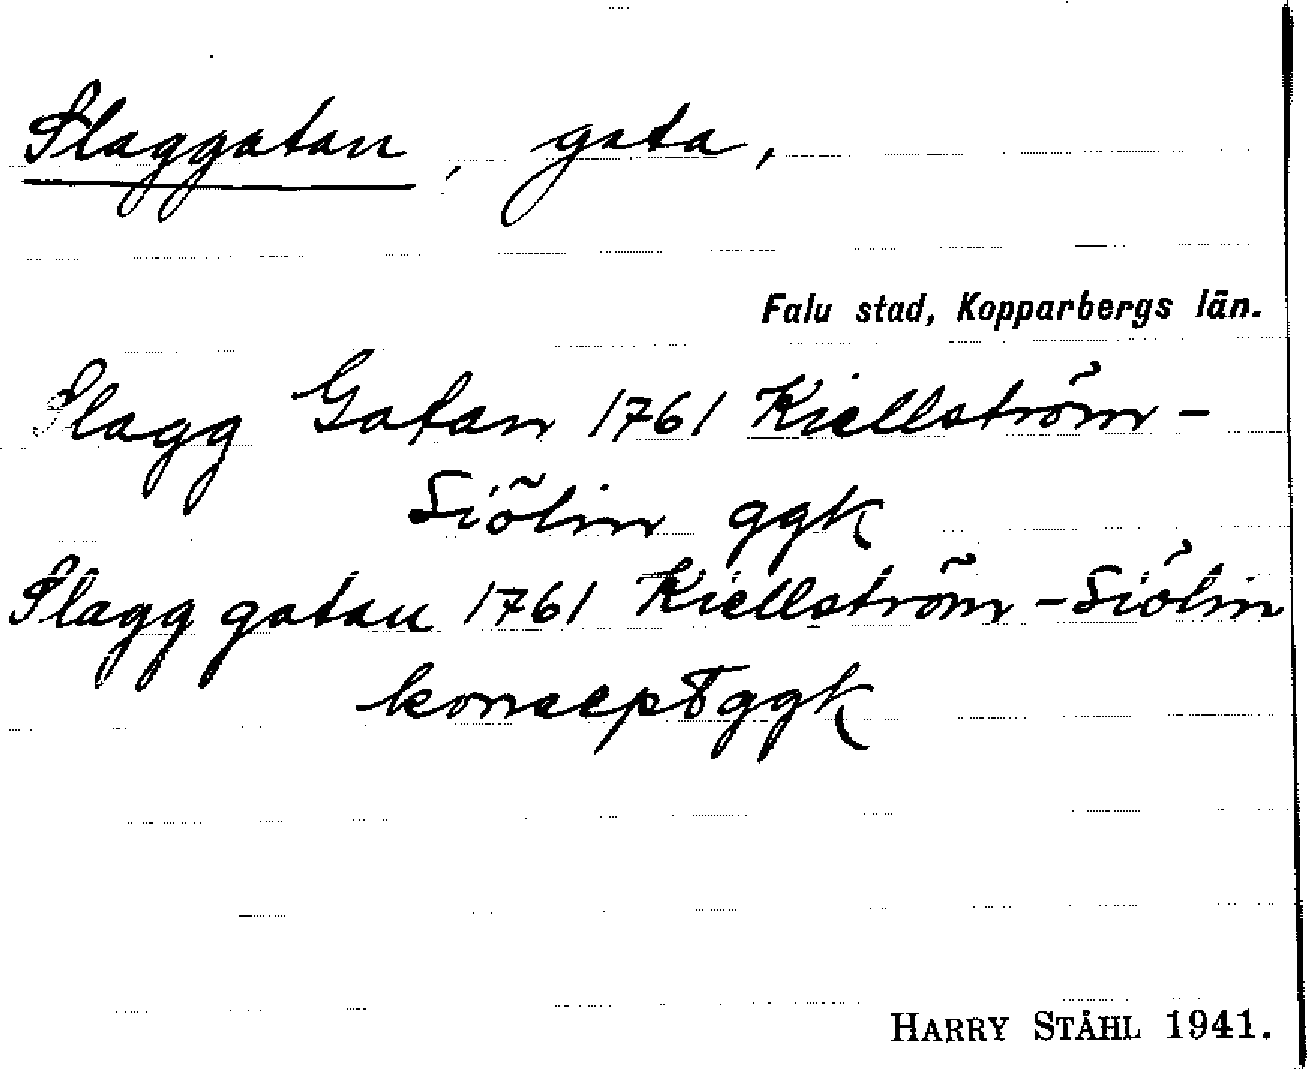 Slaggatan, gata,
Falu stad, Kopparbergs län.
Slagg Gatan 1761 Kiellström-
Siölin ggk
Slagg gatan 1761 Kiellström-Siölin
koncept ggk
HARRY STÅHL 1941.